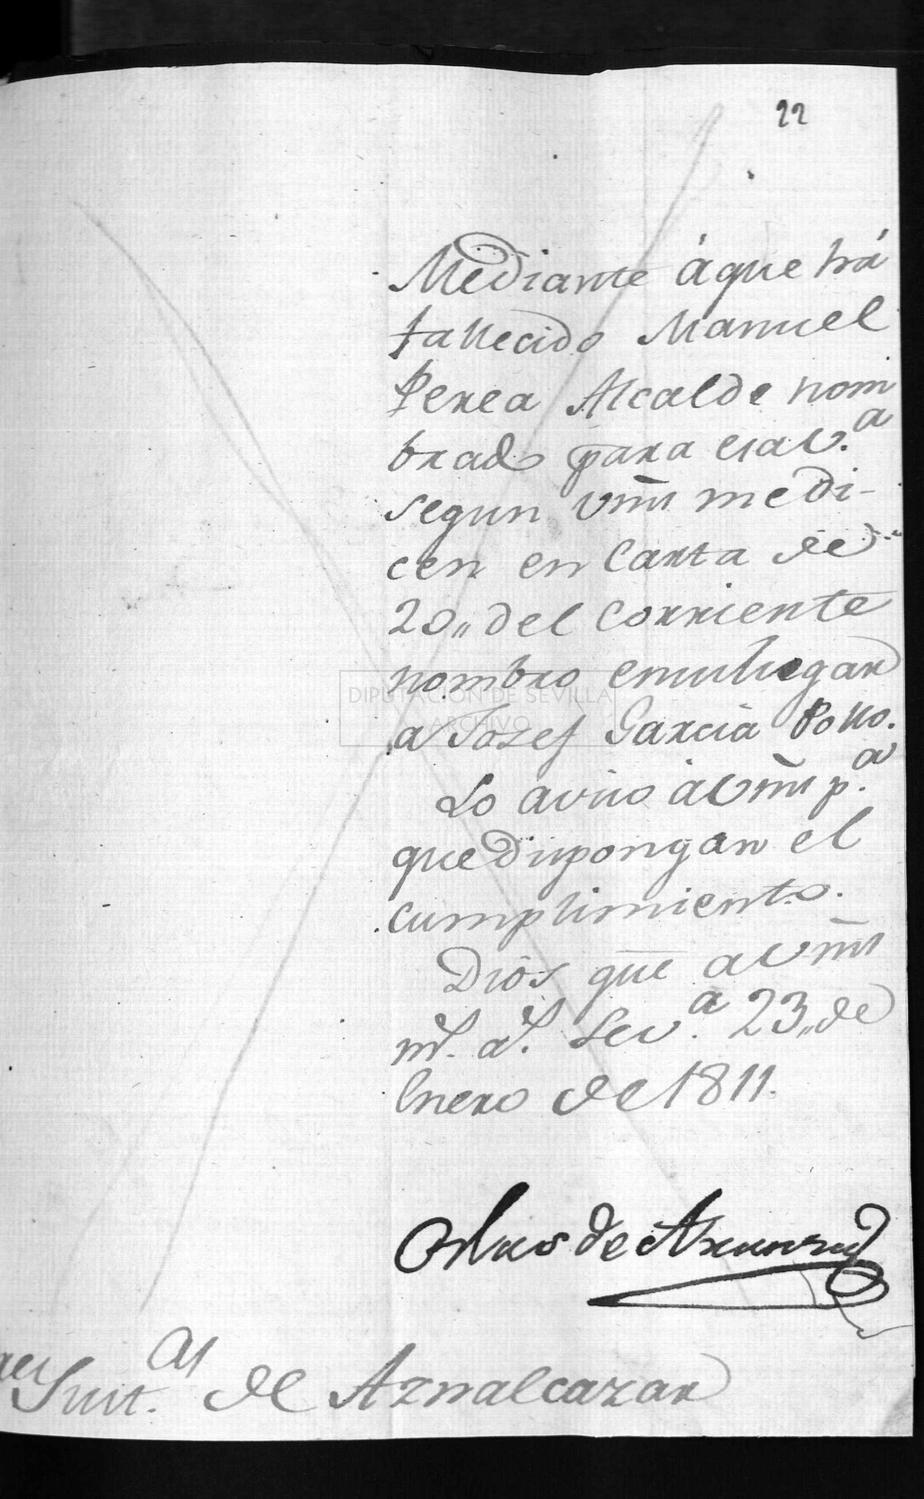 22
Mediante á que há
fallecido Manuel
Perea Alcalde nom
brado para esa v.ª
segun Vms me di-
cen en Carta de
20,, del Corriente
nombro en su lugar
a Josef Garcia Pollo.
Lo aviso á Vms p.ª
que dispongan el
cumplimiento.
Dios gue a Vms
ms. as. Sev.ª 23,, de
Enero de 1811.
de
Just.as de Aznalcazar
DIPUTACIÓN DE SEVILLA
ARCHIVO